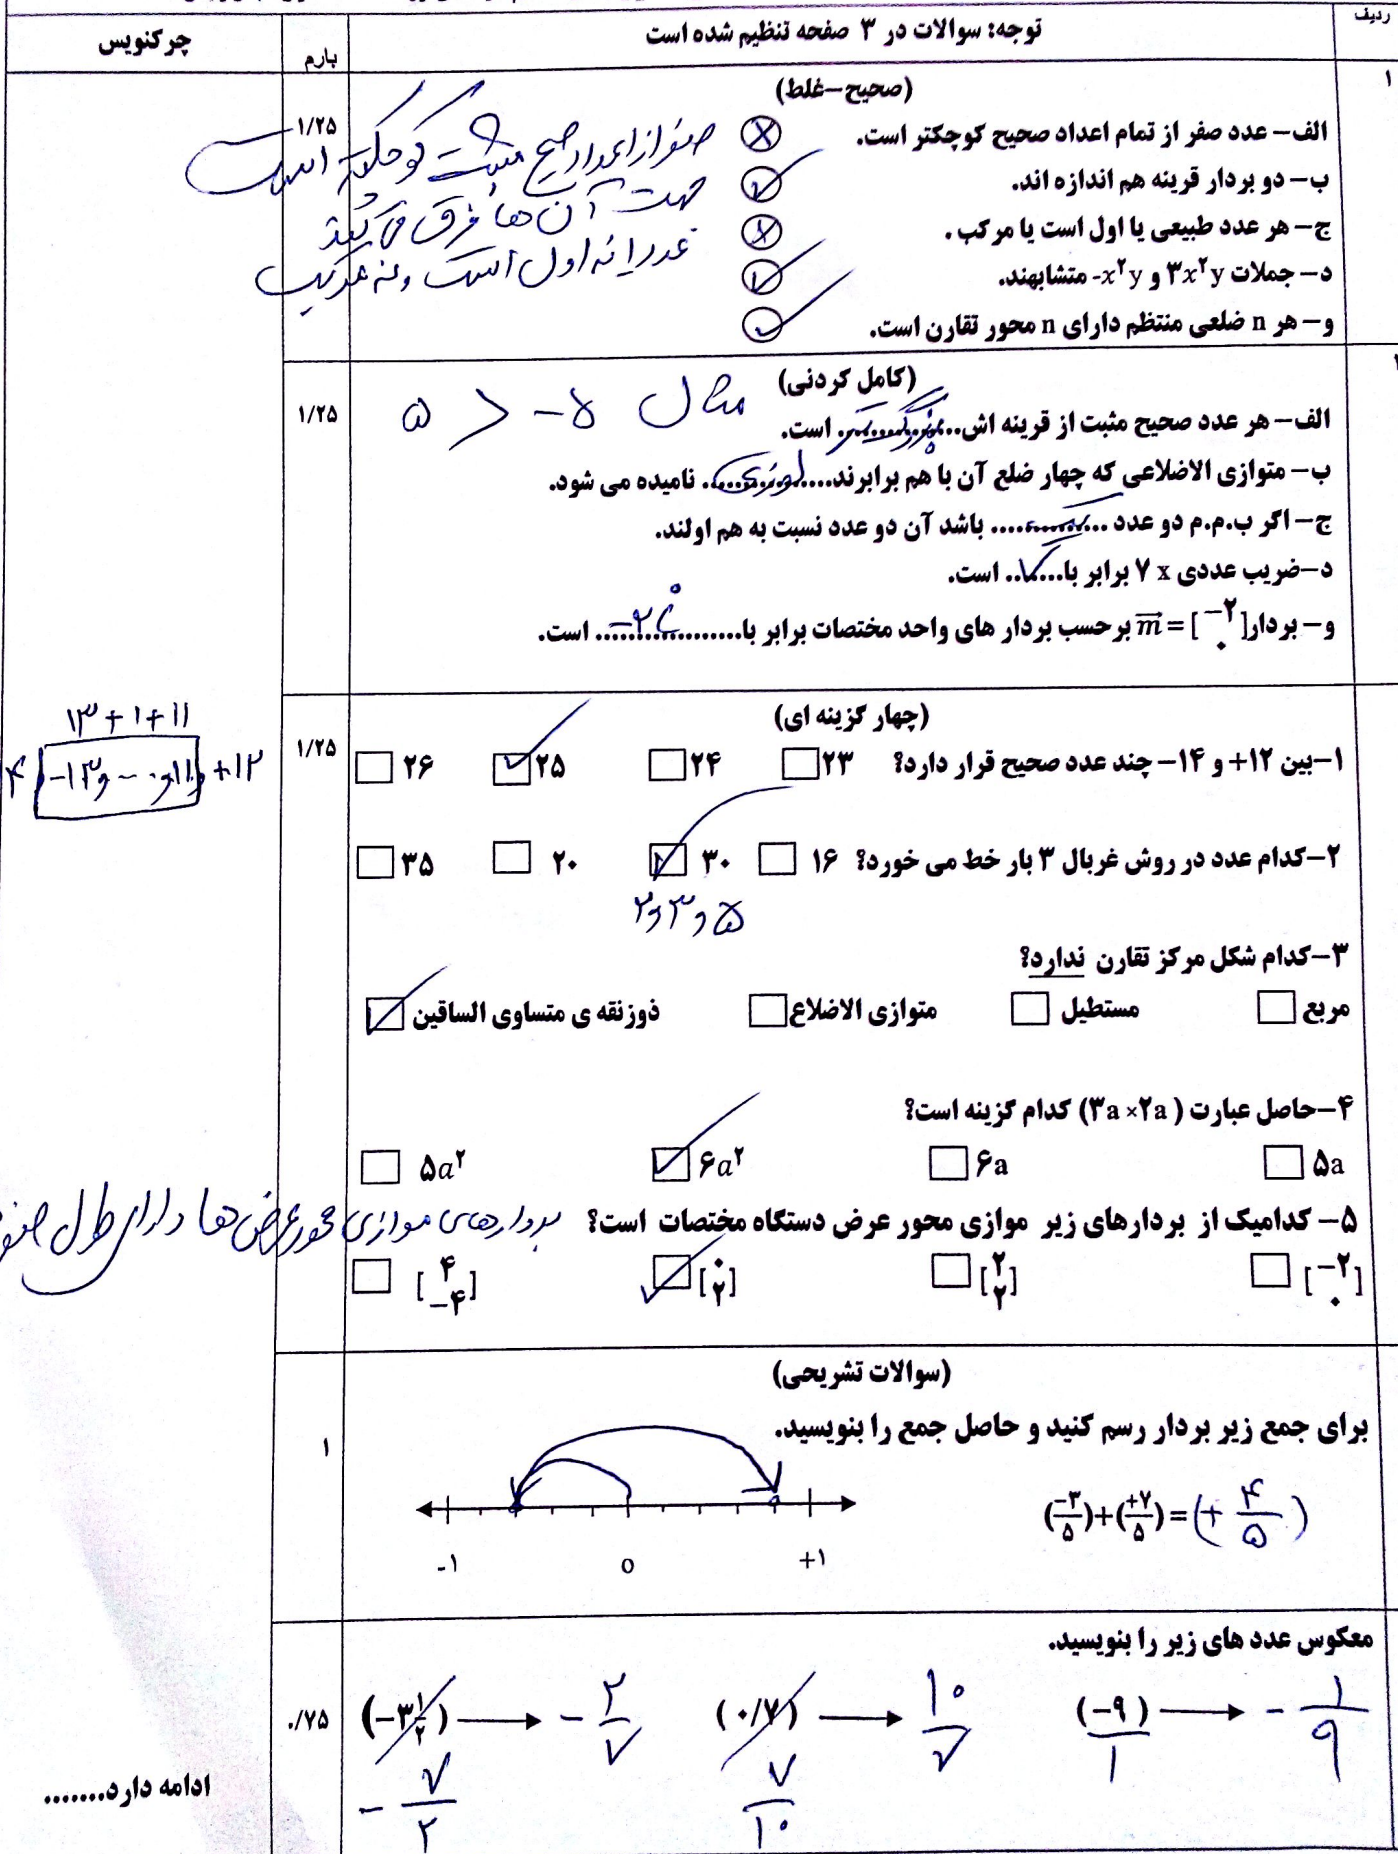 ردیف
توجه: سوالات در ۳ صفحه تنظیم شده است
بارم
چرکنویس
۱
(صحیح-غلط)
۱/۲۵
الف- عدد صفر از تمام اعداد صحیح کوچکتر است.
صفر از اعداد صحیح مثبت کوچکتر است
ب- دو بردار قرینه هم اندازه اند.
جهت آن ها فرق می کند
ج- هر عدد طبیعی یا اول است یا مرکب.
عدد ۱ نه اول است و نه مرکب
د- جملات ۳x²y و -x²y متشابهند.
و- هر n ضلعی منتظم دارای n محور تقارن است.
(کامل کردنی)
۱/۲۵
الف- هر عدد صحیح مثبت از قرینه اش بزرگتر است.
مثال ۵ > -۵
ب- متوازی الاضلاعی که چهار ضلع آن با هم برابرند....لوزی.... نامیده می شود.
ج- اگر ب.م.م دو عدد ....یک.... باشد آن دو عدد نسبت به هم اولند.
د-ضریب عددی ۷x برابر با...۷... است.
و- بردار [-۲ ۰] = m⃗ برحسب بردار های واحد مختصات برابر با.... -۲i .... است.
(چهار گزینه ای)
۱/۲۵
۱۳+۱+۱۱
۱-بین ۱۲+ و ۱۴- چند عدد صحیح قرار دارد؟ ۲۳ ۲۴ ۲۵ ۲۶
۲-کدام عدد در روش غربال ۳ بار خط می خورد؟ ۱۶ ۳۰ ۲۰ ۳۵
۲و۳و۵
۳-کدام شکل مرکز تقارن ندارد؟
مربع مستطیل متوازی الاضلاع ذوزنقه ی متساوی الساقین
۴-حاصل عبارت (۳a×۲a) کدام گزینه است؟
۵a ۶a ۶a² ۵a²
۵- کدامیک از بردارهای زیر موازی محور عرض دستگاه مختصات است؟
بردارهای موازی محور عرض ها دارای طول صفر
[-۲ ۰] [۲ ۲] [۰ ۲] [۴ -۴]
(سوالات تشریحی)
برای جمع زیر بردار رسم کنید و حاصل جمع را بنویسید.
۱
(-۳/۵)+(+۷/۵)=(+۴/۵)
-۱ 0 +۱
معکوس عدد های زیر را بنویسید.
۰/۷۵
(-۹)/۱ → -۱/۹ (۰/۷) ۷/۱۰ → ۱۰/۷ (-۳ ۱/۲) -۷/۲ → -۲/۷
ادامه دارد.......